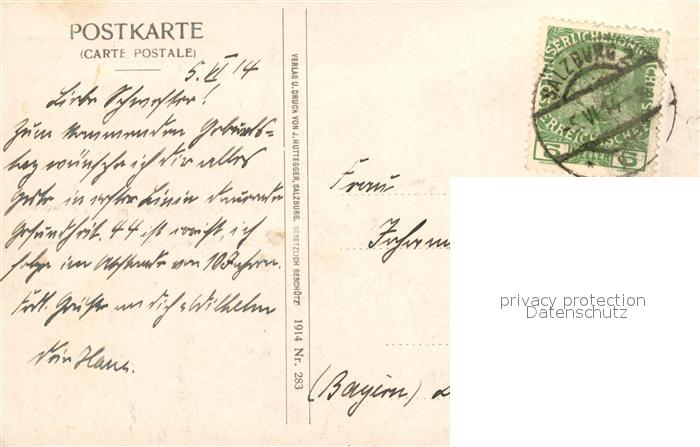 POSTKARTE
(CARTE POSTALE)
5. VI 14
Liebe Schwester!
Zum kommenden Geburts-
tag wünsche ich dir alles
Gute in erster Linie dauernde
Gesundheit. 44 ist erreicht, ich
folge im Abstande von 10 Jahren.
Grüße an dich u Wilhelm
dein Hans.
VERLAG U. DRUCK VON J. HUTTEGGER, SALZBURG. GESETZLICH GESCHÜTZT 1914 Nr. 283
SALZBURG 2
5 VI 14
5
Frau
(Bayern)
privacy protection
Datenschutz